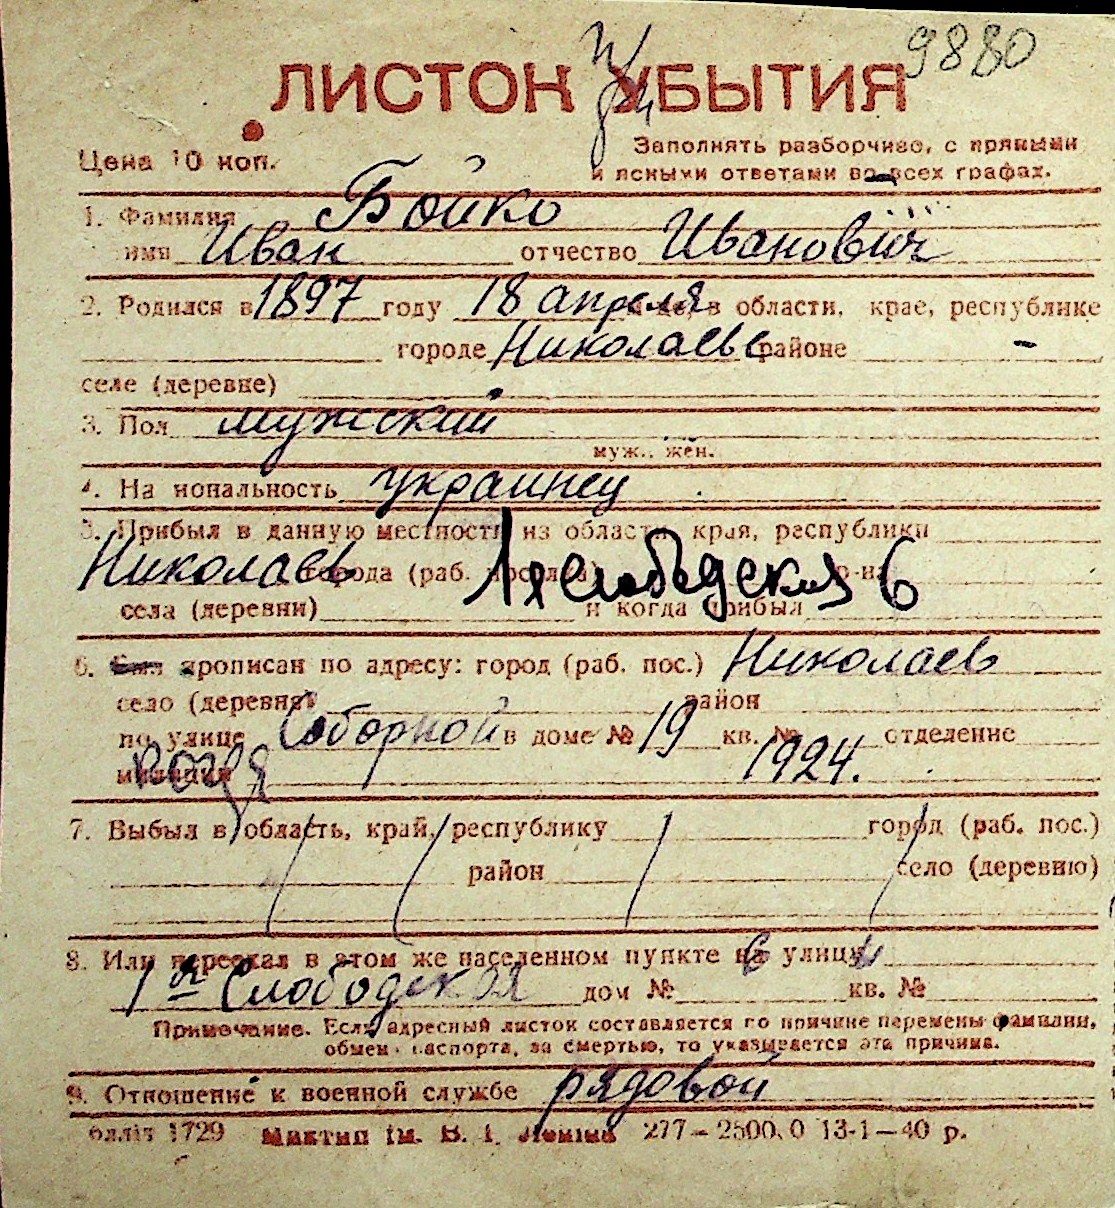 9880
ЛИСТОК УБЫТИЯ
Цена 10 коп.
Заполнять разборчиво, с прямыми
и ясными ответами во всех графах.
1. Фамилия Бойко
имя Иван отчество Иванович
2. Родился в 1897 году 18 апреля в области, крае, республике
городе Николаеве районе -
селе (деревне)
3. Пол мужской
муж., жен.
4. Национальность украинец
5. Прибыл в данную местность из области, края, республики
Николаев города (раб. поселка) 1я Слободская 6 р-на
села (деревни) и когда прибыл
6. Был прописан по адресу: город (раб. пос.) Николаев
село (деревня) район
по улице Соборной в доме № 19 кв. № отделение
милиции 1924.
7. Выбыл в область, край, республику город (раб. пос.)
район село (деревню)
8. Или переехал в этом же населенном пункте на 6 улицу
1я Слободская дом № кв. №
Примечание. Если адресный листок составляется по причине перемены фамилии,
обмена паспорта, за смертью, то указывается эта причина.
9. Отношение к военной службе рядовой
1729 ім. В. І. Леніна 277—2500.0 13-1—40 р.